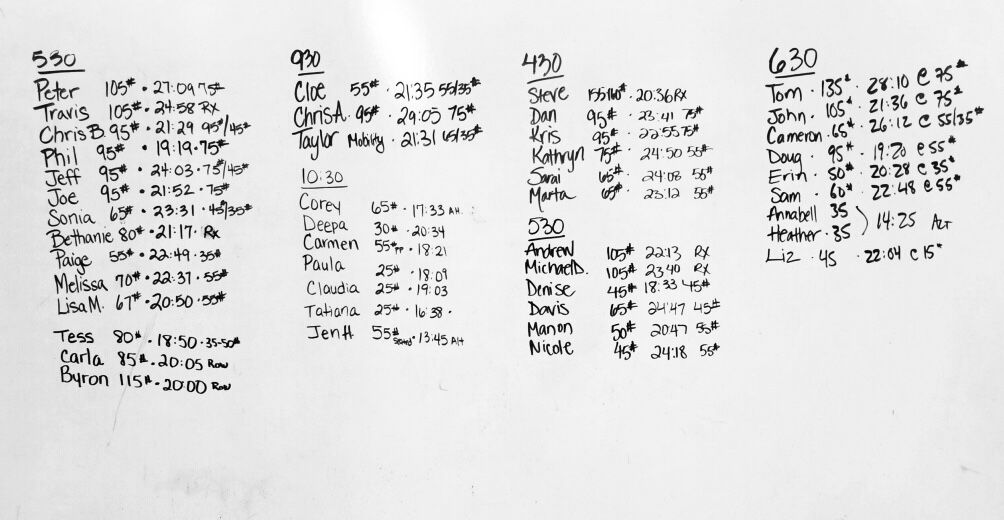 530
Peter 105# • 27:09 75#
Travis 105# • 24:58 Rx
Chris B. 95# • 21:29 95#/45#
Phil 95# • 19:19 • 75#
Jeff 95# • 24:03 • 75/45#
Joe 95# • 21:52 • 75#
Sonia 65# • 23:31 • 45#/35#
Bethanie 80# • 21:17 • Rx
Paige 55# • 22:49 • 35#
Melissa 70# • 22:37 • 55#
Lisa M. 67# • 20:50 • 55#
Tess 80# • 18:50 • 35-50#
Carla 85# • 20:05 Row
Byron 115# • 20:00 Row
930
Cloe 55# • 21:35 55/35#
Chris A. 95# • 29:05 75#
Taylor Mobility • 21:31 65/35#
10:30
Corey 65# • 17:33
Deepa 30# • 20:34
Carmen 55# PP • 18:21
Paula 25# • 18:09
Claudia 25# • 19:03
Tatiana 25# • 16:38 •
Jen H 55# • 13:45 Alt
430
Steve 20:36 Rx
Dan 95# • 23:41 75#
Kris 95# • 22:55 75#
Kathryn 75# • 24:50 55#
Sarai 65# • 24:08 55#
Marta 65# 23:12 55#
530
Andrew 105# 22:13 Rx
Michael D. 105# 23:40 Rx
Denise 45# 18:33 45#
Davis 65# 24:47 45#
Manon 50# 20:47 55#
Nicole 45# 24:18 55#
630
Tom • 135# • 28:10 @ 75#
John • 105# • 21:36 @ 75#
Cameron • 65# • 26:12 @ 55/35#
Doug • 95# • 19:20 @ 55#
Erin • 50# • 20:28 @ 35#
Sam • 60# • 22:48 @ 55#
Annabell 35
Heather • 35 ) 14:25 Alt
Liz • 45 • 22:04 @ 15#